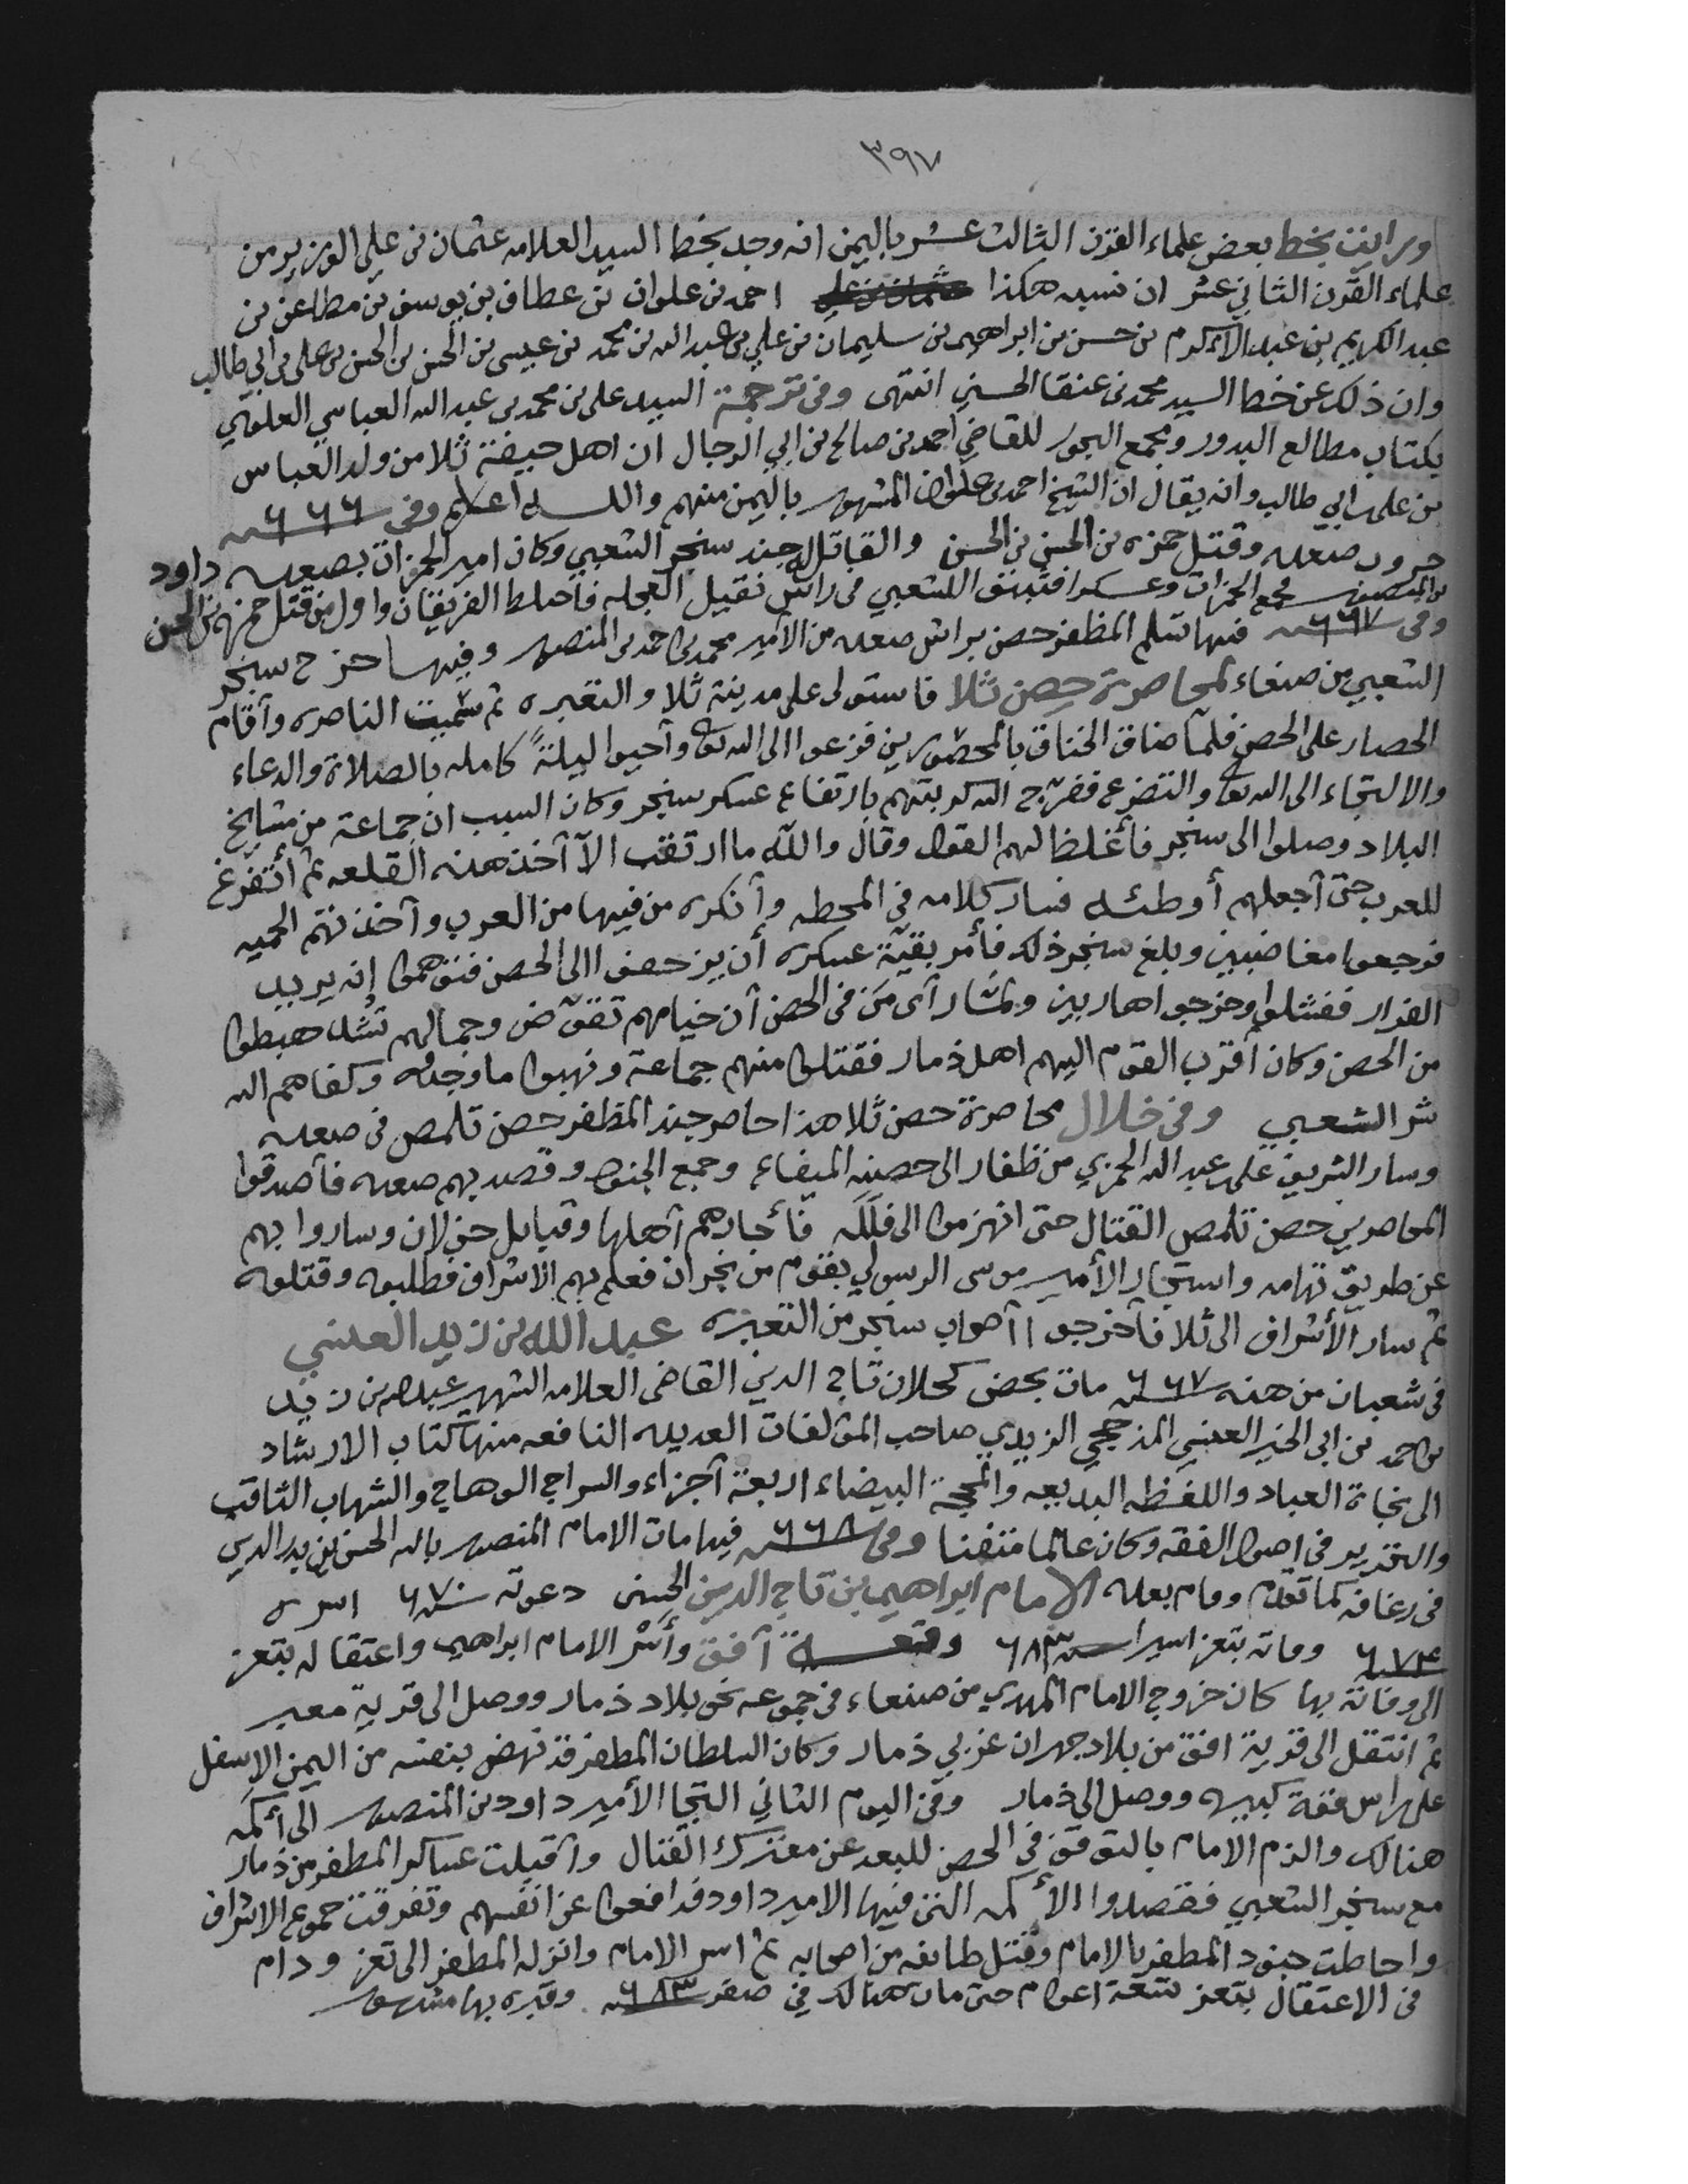 ٣٩٧
ورايت بخط بعض علماء القرن الثالث عشر باليمن انه وجد بخط السيد العلامه عثمان بن علي الوزير من
علماء القرن الثاني عشر ان نسبه هكذا عثمان بن علي احمد بن علوان بن عطاف بن يوسف بن مطاعن بن
عبد الكريم بن عبد الاكرم بن حسن بن ابراهيم بن سليمان بن علي بن عبد الله بن محمد بن عيسى بن الحسن بن الحسن بن علي بن ابي طالب
وان ذلك عن خط السيد محمد بن عنقا الحسني انتهى وفي ترجمة السيد علي بن محمد بن عبد الله العباسي العلوي
بكتاب مطالع البدور ومجمع البحور للقاضي احمد بن صالح بن ابي الرجال ان اهل ثلا من ولد العباس
بن علي بن ابي طالب وانه يقال ان الشيخ احمد بن علوان المشهور باليمن منهم والله اعلم وفي سنة ٦٦٦
حروب صعده وقتل حمزه بن الحسن بن الحسن والقاتل جند سنجر الشعبي وكان امير الحمزات بصعده داود
بن المنصور مجمع الحمزات وعسكرا الشعبي في راس نقيل العجله فاختلط الفريقان واول من قتل حمزه بن الحسن
وفي سنة ٦٦٧ فيها تسلم المظفر حصن براش صعده من الأمير محمد بن احمد بن المنصور وفيها خرج سنجر
الشعبي من صنعاء لمحاصرة حصن ثلا فاستولى على مدينة ثلا والتعبره ثم سميت الناصره وأقام
الحصار على الحصن فلما ضاق الخناق بالمحصورين فزعوا الى الله تعالى وأحيوا ليلةً كامله بالصلاة والدعاء
والالتجاء الى الله تعالى والتضرع ففرّج الله كربتهم بارتفاع عسكر سنجر وكان السبب ان جماعة من مشايخ
البلاد وصلوا الى سنجر فأغلظ لهم القول وقال والله ما ارتقب الّا آخذ هذه القلعه ثم أتفرغ
للعرب حتى أجعلهم أوطئه فسار كلامه في المحطه وأنكره من فيها من العرب وأخذتهم الحميه
فرجعوا مغاضبين وبلغ سنجر ذلك فأمر بقيّة عسكره أن يزحفوا الى الحصن فتوهموا إنه يريد
الفرار ففشلوا وخرجوا هاربين ولمّا رآى مَن في الحصن أن خيامهم تقوّض وجمالهم تشد هبطوا
من الحصن وكان أقرب القوم اليهم اهل ذمار فقتلوا منهم جماعة ونهبوا ما وجدوه وكفاهم الله
شر الشعبي وفي خلال محاصرة حصن ثلا هذا حاصر جند المظفر حصن تلمص في صعده
وسار الشريف علي بن عبد الله الحمزي من ظفار الى حصنه الميفاع وجمع الجنود وقصد بهم صعده فأصدقوا
المحاصرين حصن تلمص القتال حتى انهزموا الى فللَه فأجارهم أهلها وقبايل خولان وساروا بهم
عن طريق تهامه واستجار الأمير موسى الرسولي بقوم من نجران فعلم بهم الاشراف فطلبوه وقتلوه
ثم سار الأشراف الى ثلا فأخرجوا أصحاب سنجر من التعبره عبد الله بن زيد العنسي
في شعبان من هذه سنة ٦٦٧ مات بحصن كحلان تاج الدين القاضي العلامه الشهير عبد الله بن زيد
بن احمد بن ابي الخير العنسي المذحجي الزيدي صاحب المؤلفات العديده النافعه منها كتاب الارشاد
الى نجاة العباد واللفظه البديعه والمحجة البيضاء اربعة أجزاء والسراج الوهاج والشهاب الثاقب
والتحرير في اصول الفقه وكان عالما متفننا وفي سنة ٦٦٨ فيها مات الامام المنصور بالله الحسن بن بدر الدين
في رغافه كما تقدم وقام بعده الامام ابراهيم بن تاج الدين الحسني دعوته سنة ٦٧٠ اسره
٦٧٤ وفاته بتعز اسيرا سنة ٦٨٣ وقعة أفق وأسر الامام ابراهيم واعتقاله بتعز
الى وفاته بها كان خروج الامام المهدي من صنعاء في جموعه نحو بلاد ذمار ووصل الى قرية معبر
ثم انتقل الى قرية افق من بلاد جهران غربي ذمار وكان السلطان المظفر قد نهض بنفسه من اليمن الاسفل
على راس كبيره ووصل الى ذمار وفي اليوم الثاني التجا الأمير داود بن المنصور الى أكمه
هنالك والزم الامام بالتوقف في الحصن للبعد عن معترك القتال وأقبلت عساكر المظفر من ذمار
مع سنجر الشعبي فقصدوا الأكمه التي فيها الامير داود فدافعوا عن انفسهم وتفرقت جموع الاشراف
واحاطت جنود المظفر بالامام وقتل طائفه من اصحابه ثم اسر الامام وانزله المظفر الى تعز ودام
في الاعتقال بتعز تسعة اعوام حتى مات هنالك في صفر سنة ٦٨٣ وقبره بها مشهور